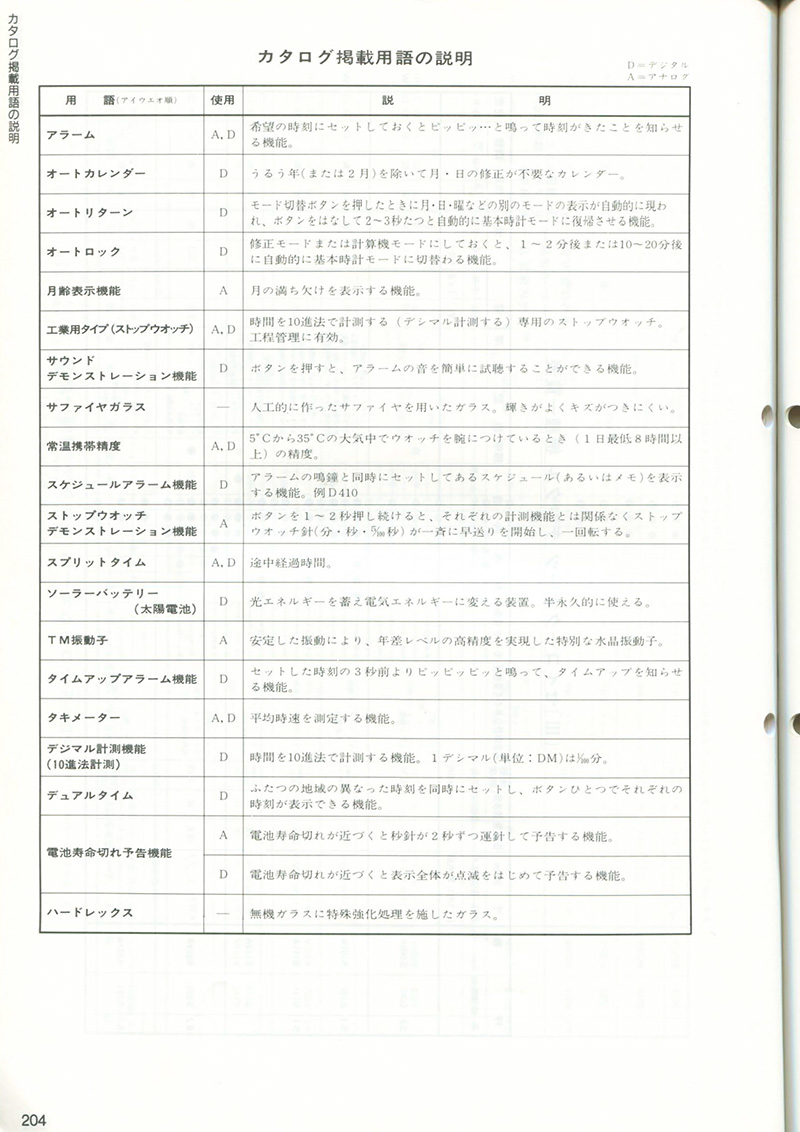 カタログ掲載用語の説明
カタログ掲載用語の説明
D＝デジタル
A＝アナログ
用　語(アイウエオ順)　使用　説　明
アラーム　A, D　希望の時刻にセットしておくとピッピッ…と鳴って時刻がきたことを知らせ
る機能。
オートカレンダー　D　うるう年(または２月)を除いて月・日の修正が不要なカレンダー。
オートリターン　D　モード切替ボタンを押したときに月・日・曜などの別のモードの表示が自動的に現わ
れ、ボタンをはなして2〜3秒たつと自動的に基本時計モードに復帰させる機能。
オートロック　D　修正モードまたは計算機モードにしておくと、１〜２分後または10〜20分後
に自動的に基本時計モードに切替わる機能。
月齢表示機能　A　月の満ち欠けを表示する機能。
工業用タイプ(ストップウオッチ)　A, D　時間を10進法で計測する（デシマル計測する）専用のストップウオッチ。
工程管理に有効。
サウンド
デモンストレーション機能　D　ボタンを押すと、アラームの音を簡単に試聴することができる機能。
サファイヤガラス　―　人工的に作ったサファイヤを用いたガラス。輝きがよくキズがつきにくい。
常温携帯精度　A, D　5°Cから35°Cの大気中でウオッチを腕につけているとき（１日最低８時間以
上）の精度。
スケジュールアラーム機能　D　アラームの鳴鐘と同時にセットしてあるスケジュール(あるいはメモ)を表示
する機能。例D410
ストップウオッチ
デモンストレーション機能　A　ボタンを１〜２秒押し続けると、それぞれの計測機能とは関係なくストップ
ウオッチ針(分・秒・5/100秒)が一斉に早送りを開始し、一回転する。
スプリットタイム　A, D　途中経過時間。
ソーラーバッテリー
(太陽電池)　D　光エネルギーを蓄え電気エネルギーに変える装置。半永久的に使える。
TM振動子　A　安定した振動により、年差レベルの高精度を実現した特別な水晶振動子。
タイムアップアラーム機能　D　セットした時刻の３秒前よりピッピッピッと鳴って、タイムアップを知らせ
る機能。
タキメーター　A, D　平均時速を測定する機能。
デジマル計測機能
(10進法計測)　D　時間を10進法で計測する機能。１デシマル(単位：DM)は1/100分。
デュアルタイム　D　ふたつの地域の異なった時刻を同時にセットし、ボタンひとつでそれぞれの
時刻が表示できる機能。
電池寿命切れ予告機能　A　電池寿命切れが近づくと秒針が２秒ずつ運針して予告する機能。
D　電池寿命切れが近づくと表示全体が点滅をはじめて予告する機能。
ハードレックス　―　無機ガラスに特殊強化処理を施したガラス。
204